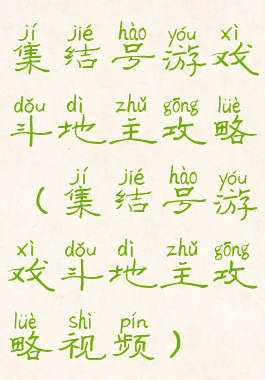 jí jié hào yóu xì
集结号游戏
dǒu dì zhǔ gōng lüè
斗地主攻略
jí jié hào yóu
（集结号游
xì dǒu dì zhǔ gōng
戏斗地主攻
lüè shì pín
略视频）